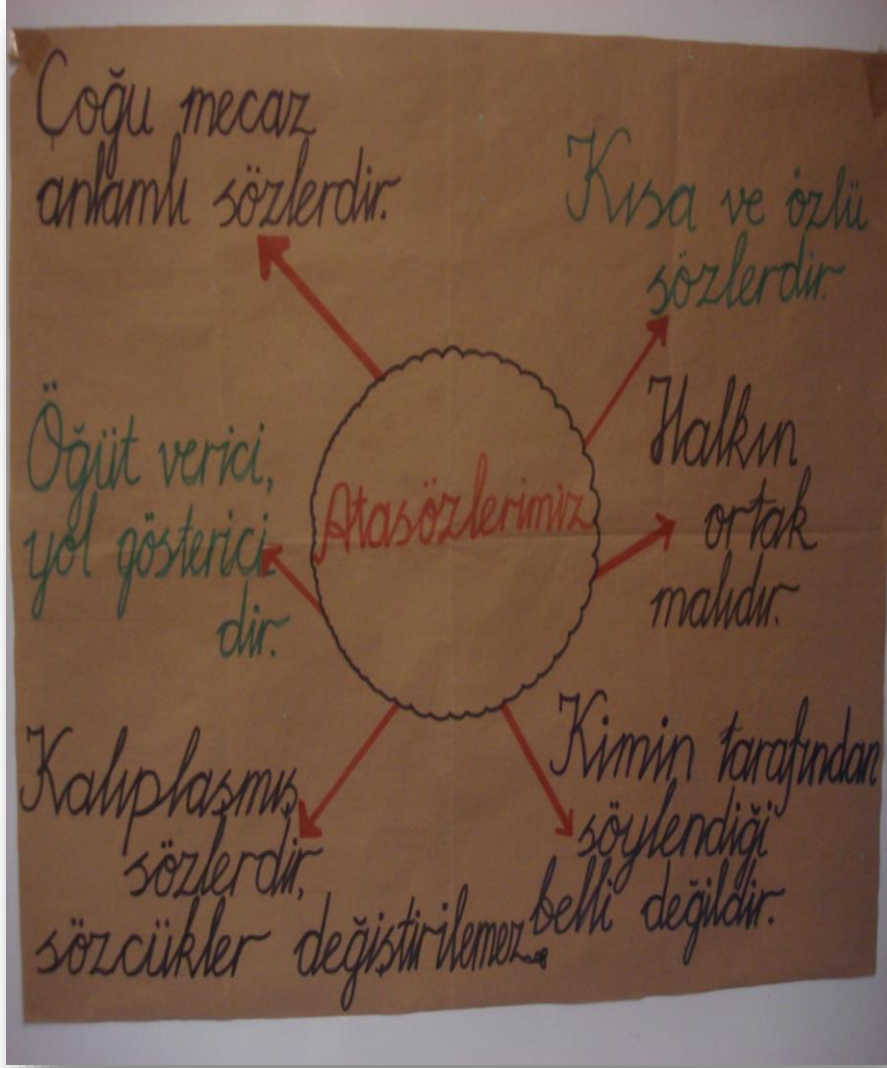 Çoğu mecaz
anlamlı sözlerdir.
Kısa ve özlü
sözlerdir.
Öğüt verici,
yol gösterici
dir.
Atasözlerimiz
Halkın
ortak
malıdır.
Kalıplaşmış
sözlerdir,
sözcükler değiştirilemez.
Kimin tarafından
söylendiği
belli değildir.